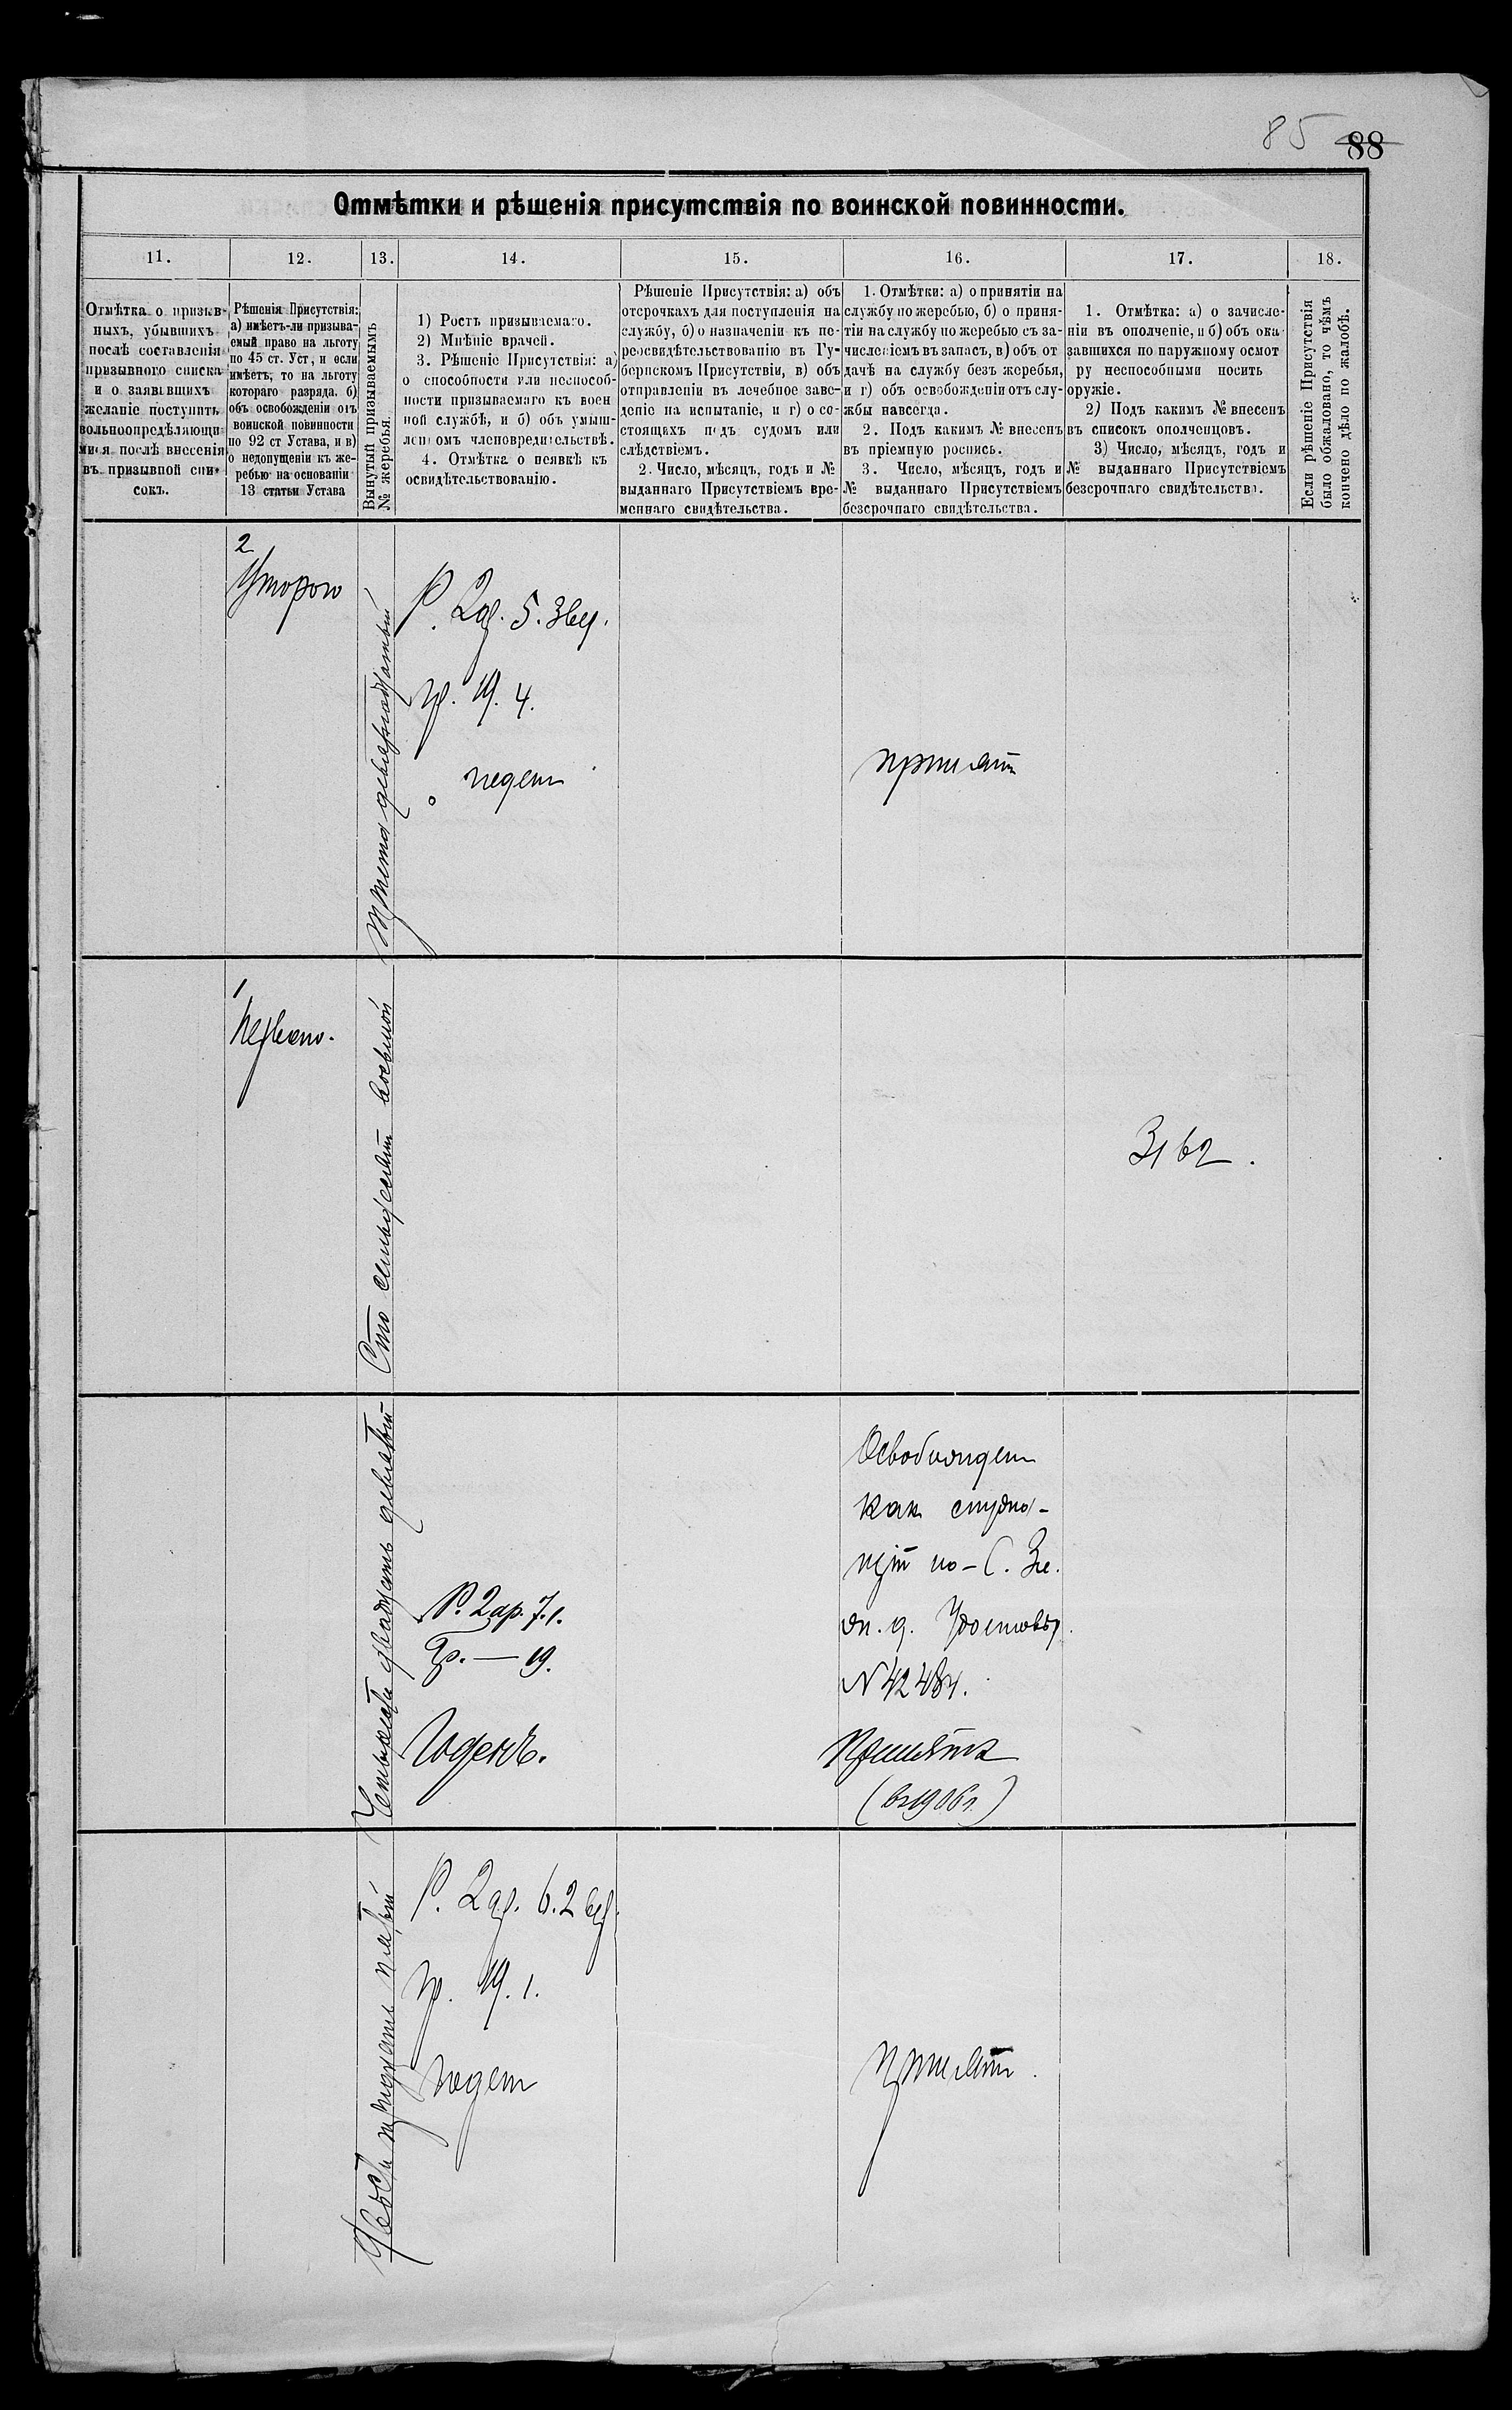 85 88
Отмѣтки и рѣшенія присутствія по воинской повинности.
11. 12. 13. 14. 15. 16. 17. 18.
Отмѣтка о призыв-
ныхъ, убывшихъ
послѣ составленія
призывного списка
и о заявившихъ
желаніе поступить
вольноопредѣляющи-
мися послѣ внесенія
въ призывной спи-
сокъ.
Рѣшенія Присутствія:
а) имѣетъ-ли призыва-
емый право на льготу
по 45 ст. Уст, и если
имѣетъ, то на льготу
котораго разряда. б)
объ освобожденіи отъ
воинской повинности
по 92 ст Устава, и в)
о недопущеніи къ же-
ребью на основаніи
13 статьи Устава
Вынутый призываемымъ
№ жеребья.
1) Ростъ призываемаго.
2) Мнѣніе врачей.
3. Рѣшеніе Присутствія: а)
о способности или неспособ-
ности призываемаго къ воен
ной службѣ, и б) объ умыш-
ленномъ членовредительствѣ.
4. Отмѣтка о неявкѣ къ
освидѣтельствованію.
Рѣшеніе Присутствія: а) объ
отсрочкахъ для поступленія на
службу, б) о назначеніи къ пе-
реосвидѣтельствованію въ Гу-
бернскомъ Присутствіи, в) объ
отправленіи въ лечебное заве-
деніе на испытаніе, и г) о со-
стоящихъ подъ судомъ или
слѣдствіемъ.
2. Число, мѣсяцъ, годъ и №
выданнаго Присутствіемъ вре-
меннаго свидѣтельства.
1. Отмѣтки: а) о принятіи на
службу по жеребью, б) о приня-
тіи на службу по жеребью съ за-
численіемъ въ запасъ, в) объ от
дачѣ на службу безъ жеребья,
и г) объ освобожденіи отъ слу-
жбы навсегда.
2. Подъ какимъ № внесенъ
въ пріемную роспись.
3. Число, мѣсяцъ, годъ и
№ выданнаго Присутствіемъ
безсрочнаго свидѣтельства.
1. Отмѣтка: а) о зачисле-
ніи въ ополченіе, и б) объ ока
завшихся по наружному осмот
ру неспособными носить
оружіе.
2) Подъ какимъ № внесенъ
въ списокъ ополченцовъ.
3) Число, мѣсяцъ, годъ и
№ выданнаго Присутствіемъ
безсрочнаго свидѣтельства.
Если рѣшеніе Присутствія
было обжаловано, то чѣмъ
кончено дѣло по жалобѣ.
2
Второго
Триста девятнадцатый
Р. 2 ар. 5. 3 вер.
гр. 19. 4.
годен
принят
1
Первого.
Сто семьдесят восьмой
3162.
Четыреста двадцать девятый
Р. 2 ар. 7. 1.
Гр. — 19.
Годенъ.
Освобожден
как
№ 42484.
Принятъ
(въ 1906 г.)
Двести тридцать пятый
Р. 2 ар. 6. 2 вер.
гр. 19. 1.
годен
принят.